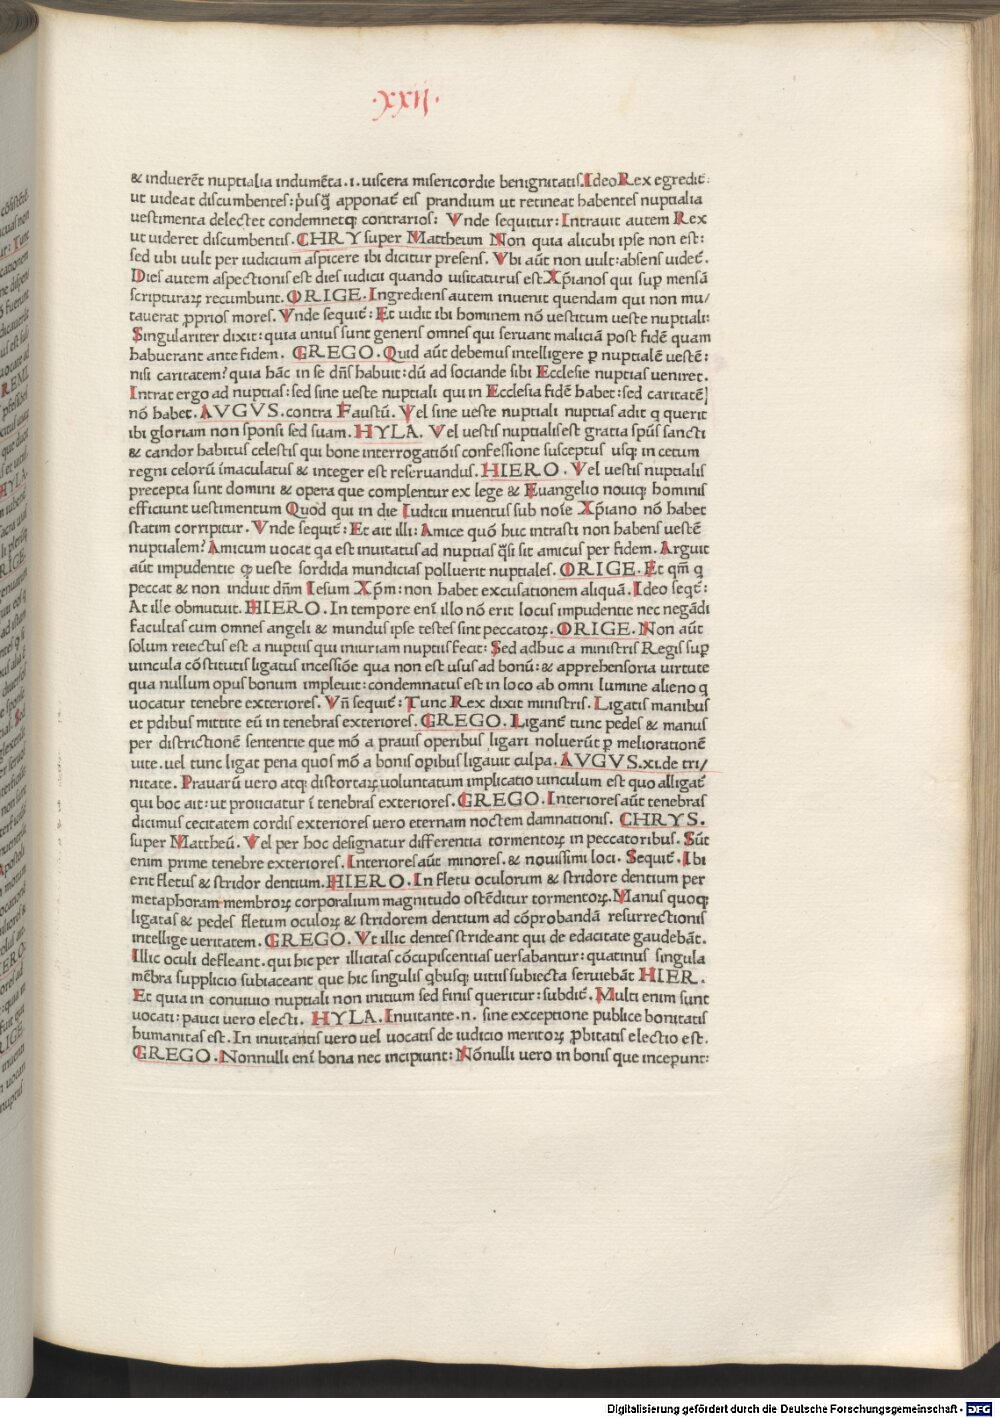 ·XXII·
& induerẽt nuptialia indumẽta.i.uiscera misericordie benignitatis.Ideo Rex egredit᷑:
ut uideat discumbentes: p̃usq̃ apponat᷑ eis prandium ut retineat habentes nuptialia
uestimenta delectet condemnetqꝫ contrarios: Vnde sequitur: Intrauit autem Rex
ut uideret discumbentis. CHRY super Mattheum Non quia alicubi ipse non est:
sed ubi uult per iudicium aspicere ibi dicitur presens. Vbi aũt non uult: absens uidet᷑.
Dies autem aspectionis est dies iudicii quando uisitaturus est Xp̃ianos qui sup mensã
scripturaꝝ recumbunt. ORIGE. Ingrediens autem inuenit quendam qui non mu/
tauerat ꝓprios mores. Vnde sequit᷑: Et uidit ibi hominem nõ uestitum ueste nuptiali:
Singulariter dixit: quia unius sunt generis omnes qui seruant maliciã post fidẽ quam
habuerant ante fidem. GREGO. Quid aũt debemus intelligere ꝑ nuptialẽ uestẽ:
nisi caritatem? quia hãc in se dñs habuit: dũ ad sociande sibi Ecclesie nuptias ueniret.
Intrat ergo ad nuptias: sed sine ueste nuptiali qui in Ecclesia fidẽ habet: sed caritatẽ
nõ habet. AVGVS. contra Faustũ. Vel sine ueste nuptiali nuptias adit q querit
ibi gloriam non sponsi sed suam. HYLA. Vel uestis nuptialis est gratia spũs sancti
& candor habitus celestis qui bone interrogatiõis confessione susceptus usqꝫ in cetum
regni celorũ ĩmaculatus & integer est reseruandus. HIERO. Vel uestis nuptialis
precepta sunt domini & opera que complentur ex lege & Euangelio nouiqꝫ hominis
efficiunt uestimentum Quod qui in die Iudicii inuentus sub noĩe Xp̃iano nõ habet
statim corripitur. Vnde sequit᷑: Et ait illi: Amice quõ huc intrasti non habens uestẽ
nuptialem? Amicum uocat qa est inuitatus ad nuptias q̃si sit amicus per fidem. Arguit
aũt impudentie ꝙ ueste sordida mundicias polluerit nuptiales. ORIGE. Et qm̃ q
peccat & non induit dñm Iesum Xp̃m: non habet excusationem aliquã. Ideo seqt᷑:
At ille obmutuit. HIERO. In tempore enĩ illo nõ erit locus impudentie nec negãdi
facultas cum omnes angeli & mundus ipse testes sint peccatoꝝ. ORIGE. Non aũt
solum reiectus est a nuptiis qui iniuriam nuptiis fecit: Sed adhuc a ministris Regis sup
uincula cõstitutis ligatus incessiõe qua non est usus ad bonũ: & apprehensoria uirtute
qua nullum opus bonum impleuit: condemnatus est in loco ab omni lumine alieno q
uocatur tenebre exteriores. Vñ sequit᷑: Tunc Rex dixit ministris. Ligatis manibus
et pdibus mittite eũ in tenebras exteriores. GREGO. Ligant᷑ tunc pedes & manus
per districtionẽ sententie que mõ a prauis operibus ligari noluerũt ꝑ meliorationẽ
uite. uel tunc ligat pena quos mõ a bonis opibus ligauit culpa. AVGVS. xi. de tri/
nitate. Prauarũ uero atqꝫ distortaꝝ uoluntatum implicatio uinculum est quo alligat᷑
qui hoc ait: ut proiiciatur ĩ tenebras exteriores. GREGO. Interiores aũt tenebras
dicimus cecitatem cordis exteriores uero eternam noctem damnationis. CHRYS.
super Mattheũ. Vel per hoc designatur differentia tormentoꝝ in peccatoribus. Sũt
enim prime tenebre exteriores. Interiores aũt minores. & nouissimi loci. Sequit᷑. Ibi
erit fletus & stridor dentium. HIERO. In fletu oculorum & stridore dentium per
metaphoram membroꝝ corporalium magnitudo ostẽditur tormentoꝝ. Manus quoqꝫ
ligatas & pedes fletum oculoꝝ & stridorem dentium ad cõprobandã resurrectionis
intellige ueritatem. GREGO. Vt illic dentes strideant qui de edacitate gaudebãt.
Illic oculi defleant. qui hic per illicitas cõcupiscentias uersabantur: quatinus singula
mẽbra supplicio subiaceant que hic singulis qbusqꝫ uitiis subiecta seruiebãt HIER.
Et quia in conuiuio nuptiali non initium sed finis queritur: subdit᷑. Multi enim sunt
uocati: pauci uero electi. HYLA. Inuitante .n. sine exceptione publice bonitatis
humanitas est. In inuitantis uero uel uocatis de iudicio meritoꝝ ꝓbitatis electio est.
GREGO. Nonnulli enĩ bona nec incipiunt: Nõnulli uero in bonis que inceperunt:
Digitalisierung gefördert durch die Deutsche Forschungsgemeinschaft - DFG